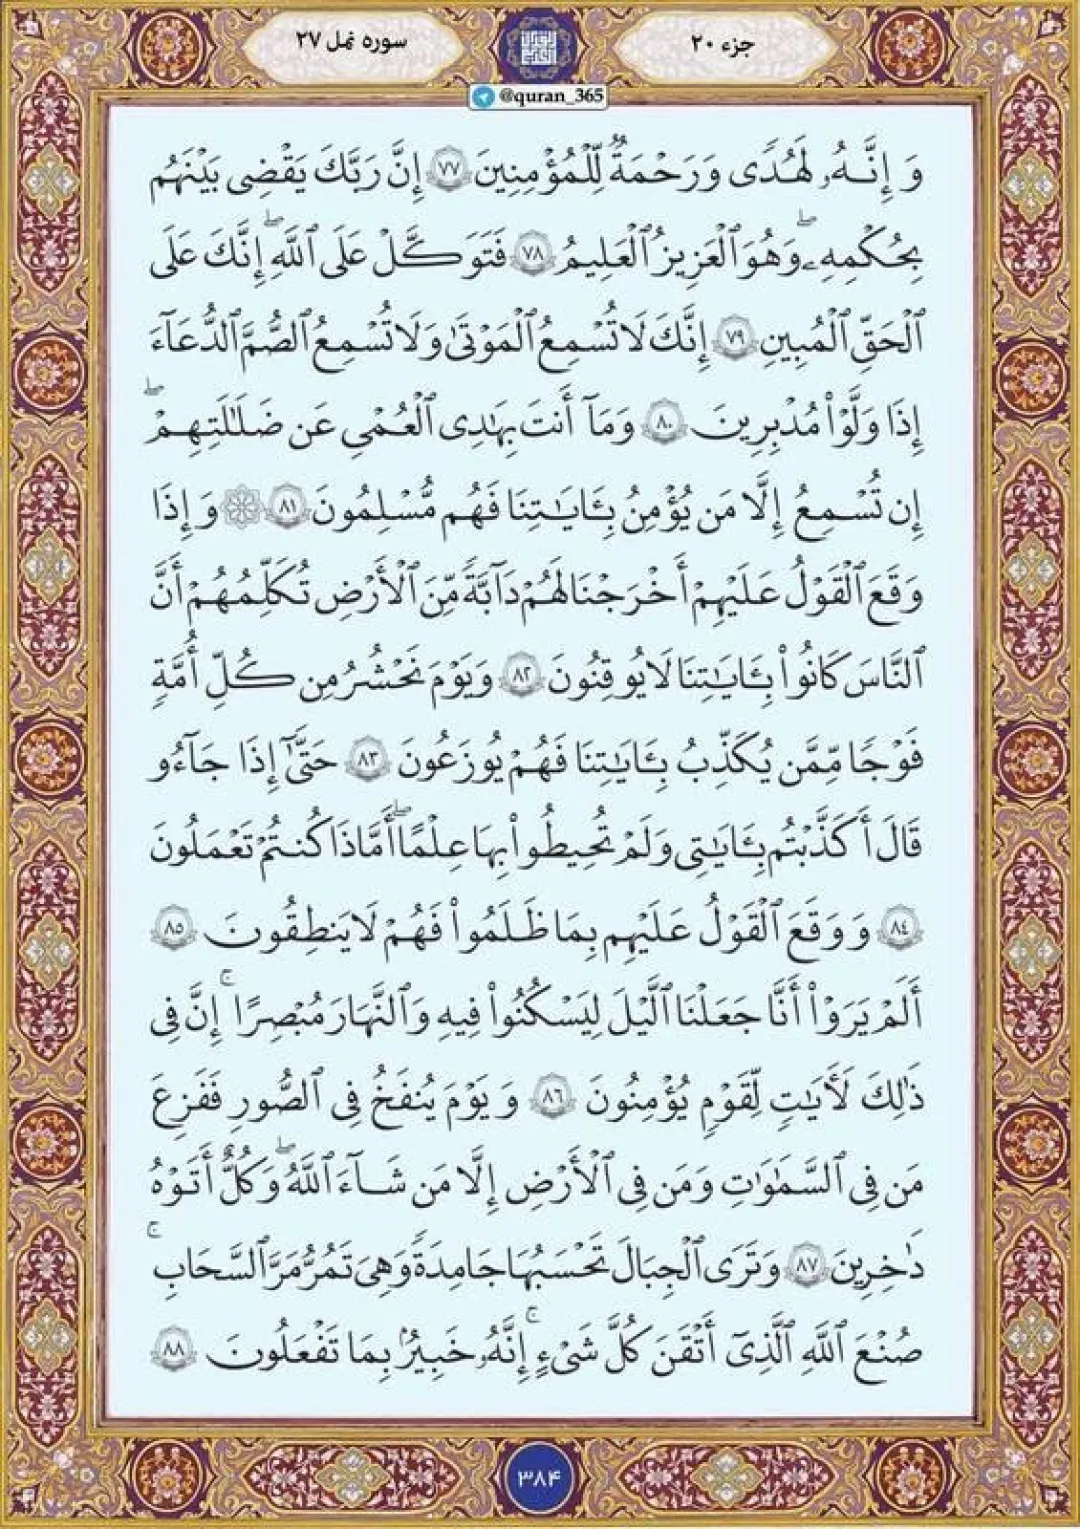 جزء ۲۰
سوره نمل ۲۷
@quran_365
وَ إِنَّهُۥ لَهُدًى وَرَحْمَةٌ لِّلْمُؤْمِنِينَ ۷۷ إِنَّ رَبَّكَ يَقْضِى بَيْنَهُم
بِحُكْمِهِۦۖ وَهُوَ ٱلْعَزِيزُ ٱلْعَلِيمُ ۷۸ فَتَوَكَّلْ عَلَى ٱللَّهِۖ إِنَّكَ عَلَى
ٱلْحَقِّ ٱلْمُبِينِ ۷۹ إِنَّكَ لَا تُسْمِعُ ٱلْمَوْتَىٰ وَلَا تُسْمِعُ ٱلصُّمَّ ٱلدُّعَآءَ
إِذَا وَلَّوْا۟ مُدْبِرِينَ ۸۰ وَمَآ أَنتَ بِهَٰدِى ٱلْعُمْىِ عَن ضَلَٰلَتِهِمْۖ
إِن تُسْمِعُ إِلَّا مَن يُؤْمِنُ بِـَٔايَٰتِنَا فَهُم مُّسْلِمُونَ ۸۱ ۞ وَإِذَا
وَقَعَ ٱلْقَوْلُ عَلَيْهِمْ أَخْرَجْنَا لَهُمْ دَآبَّةً مِّنَ ٱلْأَرْضِ تُكَلِّمُهُمْ أَنَّ
ٱلنَّاسَ كَانُوا۟ بِـَٔايَٰتِنَا لَا يُوقِنُونَ ۸۲ وَيَوْمَ نَحْشُرُ مِن كُلِّ أُمَّةٍ
فَوْجًا مِّمَّن يُكَذِّبُ بِـَٔايَٰتِنَا فَهُمْ يُوزَعُونَ ۸۳ حَتَّىٰٓ إِذَا جَآءُو
قَالَ أَكَذَّبْتُم بِـَٔايَٰتِى وَلَمْ تُحِيطُوا۟ بِهَا عِلْمًاۖ أَمَّاذَا كُنتُمْ تَعْمَلُونَ
۸۴ وَ وَقَعَ ٱلْقَوْلُ عَلَيْهِم بِمَا ظَلَمُوا۟ فَهُمْ لَا يَنطِقُونَ ۸۵
أَلَمْ يَرَوْا۟ أَنَّا جَعَلْنَا ٱلَّيْلَ لِيَسْكُنُوا۟ فِيهِ وَٱلنَّهَارَ مُبْصِرًاۚ إِنَّ فِى
ذَٰلِكَ لَـَٔايَٰتٍ لِّقَوْمٍ يُؤْمِنُونَ ۸۶ وَ يَوْمَ يُنفَخُ فِى ٱلصُّورِ فَفَزِعَ
مَن فِى ٱلسَّمَٰوَٰتِ وَمَن فِى ٱلْأَرْضِ إِلَّا مَن شَآءَ ٱللَّهُۖ وَكُلٌّ أَتَوْهُ
دَٰخِرِينَ ۸۷ وَتَرَى ٱلْجِبَالَ تَحْسَبُهَا جَامِدَةً وَهِىَ تَمُرُّ مَرَّ ٱلسَّحَابِۚ
صُنْعَ ٱللَّهِ ٱلَّذِىٓ أَتْقَنَ كُلَّ شَىْءٍۚ إِنَّهُۥ خَبِيرٌۢ بِمَا تَفْعَلُونَ ۸۸
۳۸۴